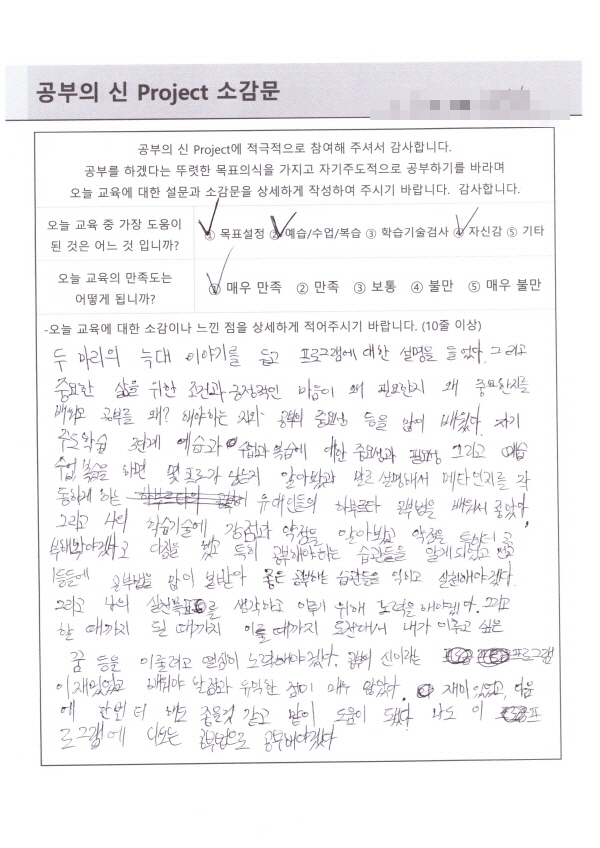 공부의 신 Project 소감문
공부의 신 Project에 적극적으로 참여해 주셔서 감사합니다.
공부를 하겠다는 뚜렷한 목표의식을 가지고 자기주도적으로 공부하기를 바라며
오늘 교육에 대한 설문과 소감문을 상세하게 작성하여 주시기 바랍니다. 감사합니다.
오늘 교육 중 가장 도움이
된 것은 어느 것 입니까?
① 목표설정 ② 예습/수업/복습 ③ 학습기술검사 ④ 자신감 ⑤ 기타
오늘 교육의 만족도는
어떻게 됩니까?
① 매우 만족 ② 만족 ③ 보통 ④ 불만 ⑤ 매우 불만
-오늘 교육에 대한 소감이나 느낀 점을 상세하게 적어주시기 바랍니다. (10줄 이상)
두 마리의 늑대 이야기를 듣고 프로그램에 대한 설명을 들었다. 그리고
중요한 삶을 위한 조건과 긍정적인 마음이 왜 필요한지 왜 중요한지를
배우고 공부를 왜? 해야하는 공부의 중요성 등을 배웠다. 자기
학습 3단계 예습과 수업과 복습에 대한 중요성과 필요성 그리고 예습
수업 복습을 하면 몇 프로가 남는지 알아봤고 말로 설명해서 메타인지를 작
동하게 하는 유대인들의 하부르타 공부법을 배워서 좋았다.
그리고 나의 학습기술에 강점과 약점을 알아봤고 약점을 특히 더
다짐을 했고 특히 공부해야하는 습관들을 알게되었고
들에 공부법을 많이 본받아 좋은 공부하는 습관들을 익히고 실천해야겠다.
그리고 나의 실천목표를 생각하고 이루기 위해 노력을 해야겠다. 그리고
할 때까지 될 때까지 이룰 때까지 도전해서 내가 이루고 싶은
꿈 등을 이룰려고 열심히 노력해야겠다. 공부의 신이라는 프로그램
이 재밌었고 배워야 할 점과 유익한 점이 매우 많았다. 재미있었고, 다음
에 한번 더 해도 좋을것 같고 많이 도움이 됐다. 나도 이 프
로그램에 나오는 공부법으로 공부해야겠다